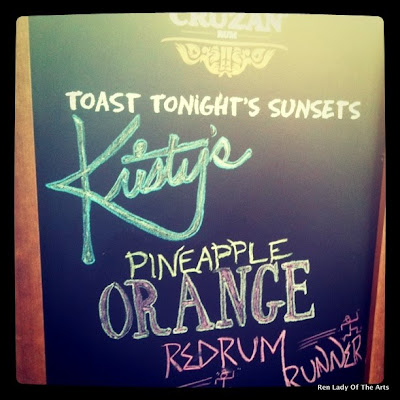 CRUZAN
RUM
TOAST TONIGHT'S SUNSETS
Kristy's
PINEAPPLE
ORANGE
REDRUM
RUNNER
Ren Lady Of The Arts